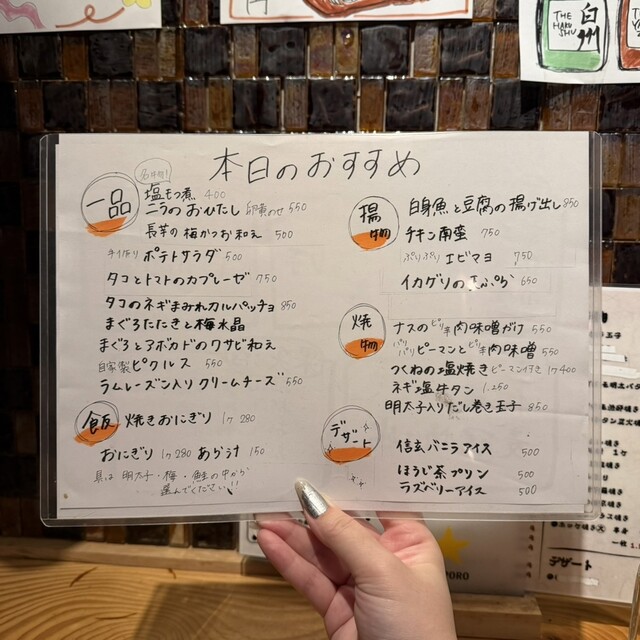 本日のおすすめ
一品
名物!
塩もつ煮 400
ニラのおひたし 卵黄のせ 550
長芋の梅かつお和え 500
手作り ポテトサラダ 500
タコとトマトのカプレーゼ 750
タコのネギまみれカルパッチョ 850
まぐろたたきと梅水晶
まぐろとアボカドのワサビ和え
自家製 ピクルス 550
ラムレーズン入りクリームチーズ 550
飯
焼きおにぎり 1ヶ 280
おにぎり 1ヶ 280 あら汁 150
具は 明太子・梅・鮭の中から
選んでください!!
揚物
白身魚と豆腐の揚げ出し 850
チキン南蛮 750
ぷりぷり エビマヨ 750
イカゲソの天ぷら 650
焼物
ナスのピリ辛肉味噌がけ 550
パリパリピーマンとピリ辛肉味噌 550
つくねの塩焼き ピーマン付き 1ヶ 400
ネギ塩牛タン 1.250
明太子入りだし巻き玉子 850
デザート
信玄バニラアイス 500
ほうじ茶プリン 500
ラズベリーアイス 500
THE
白州
デザート